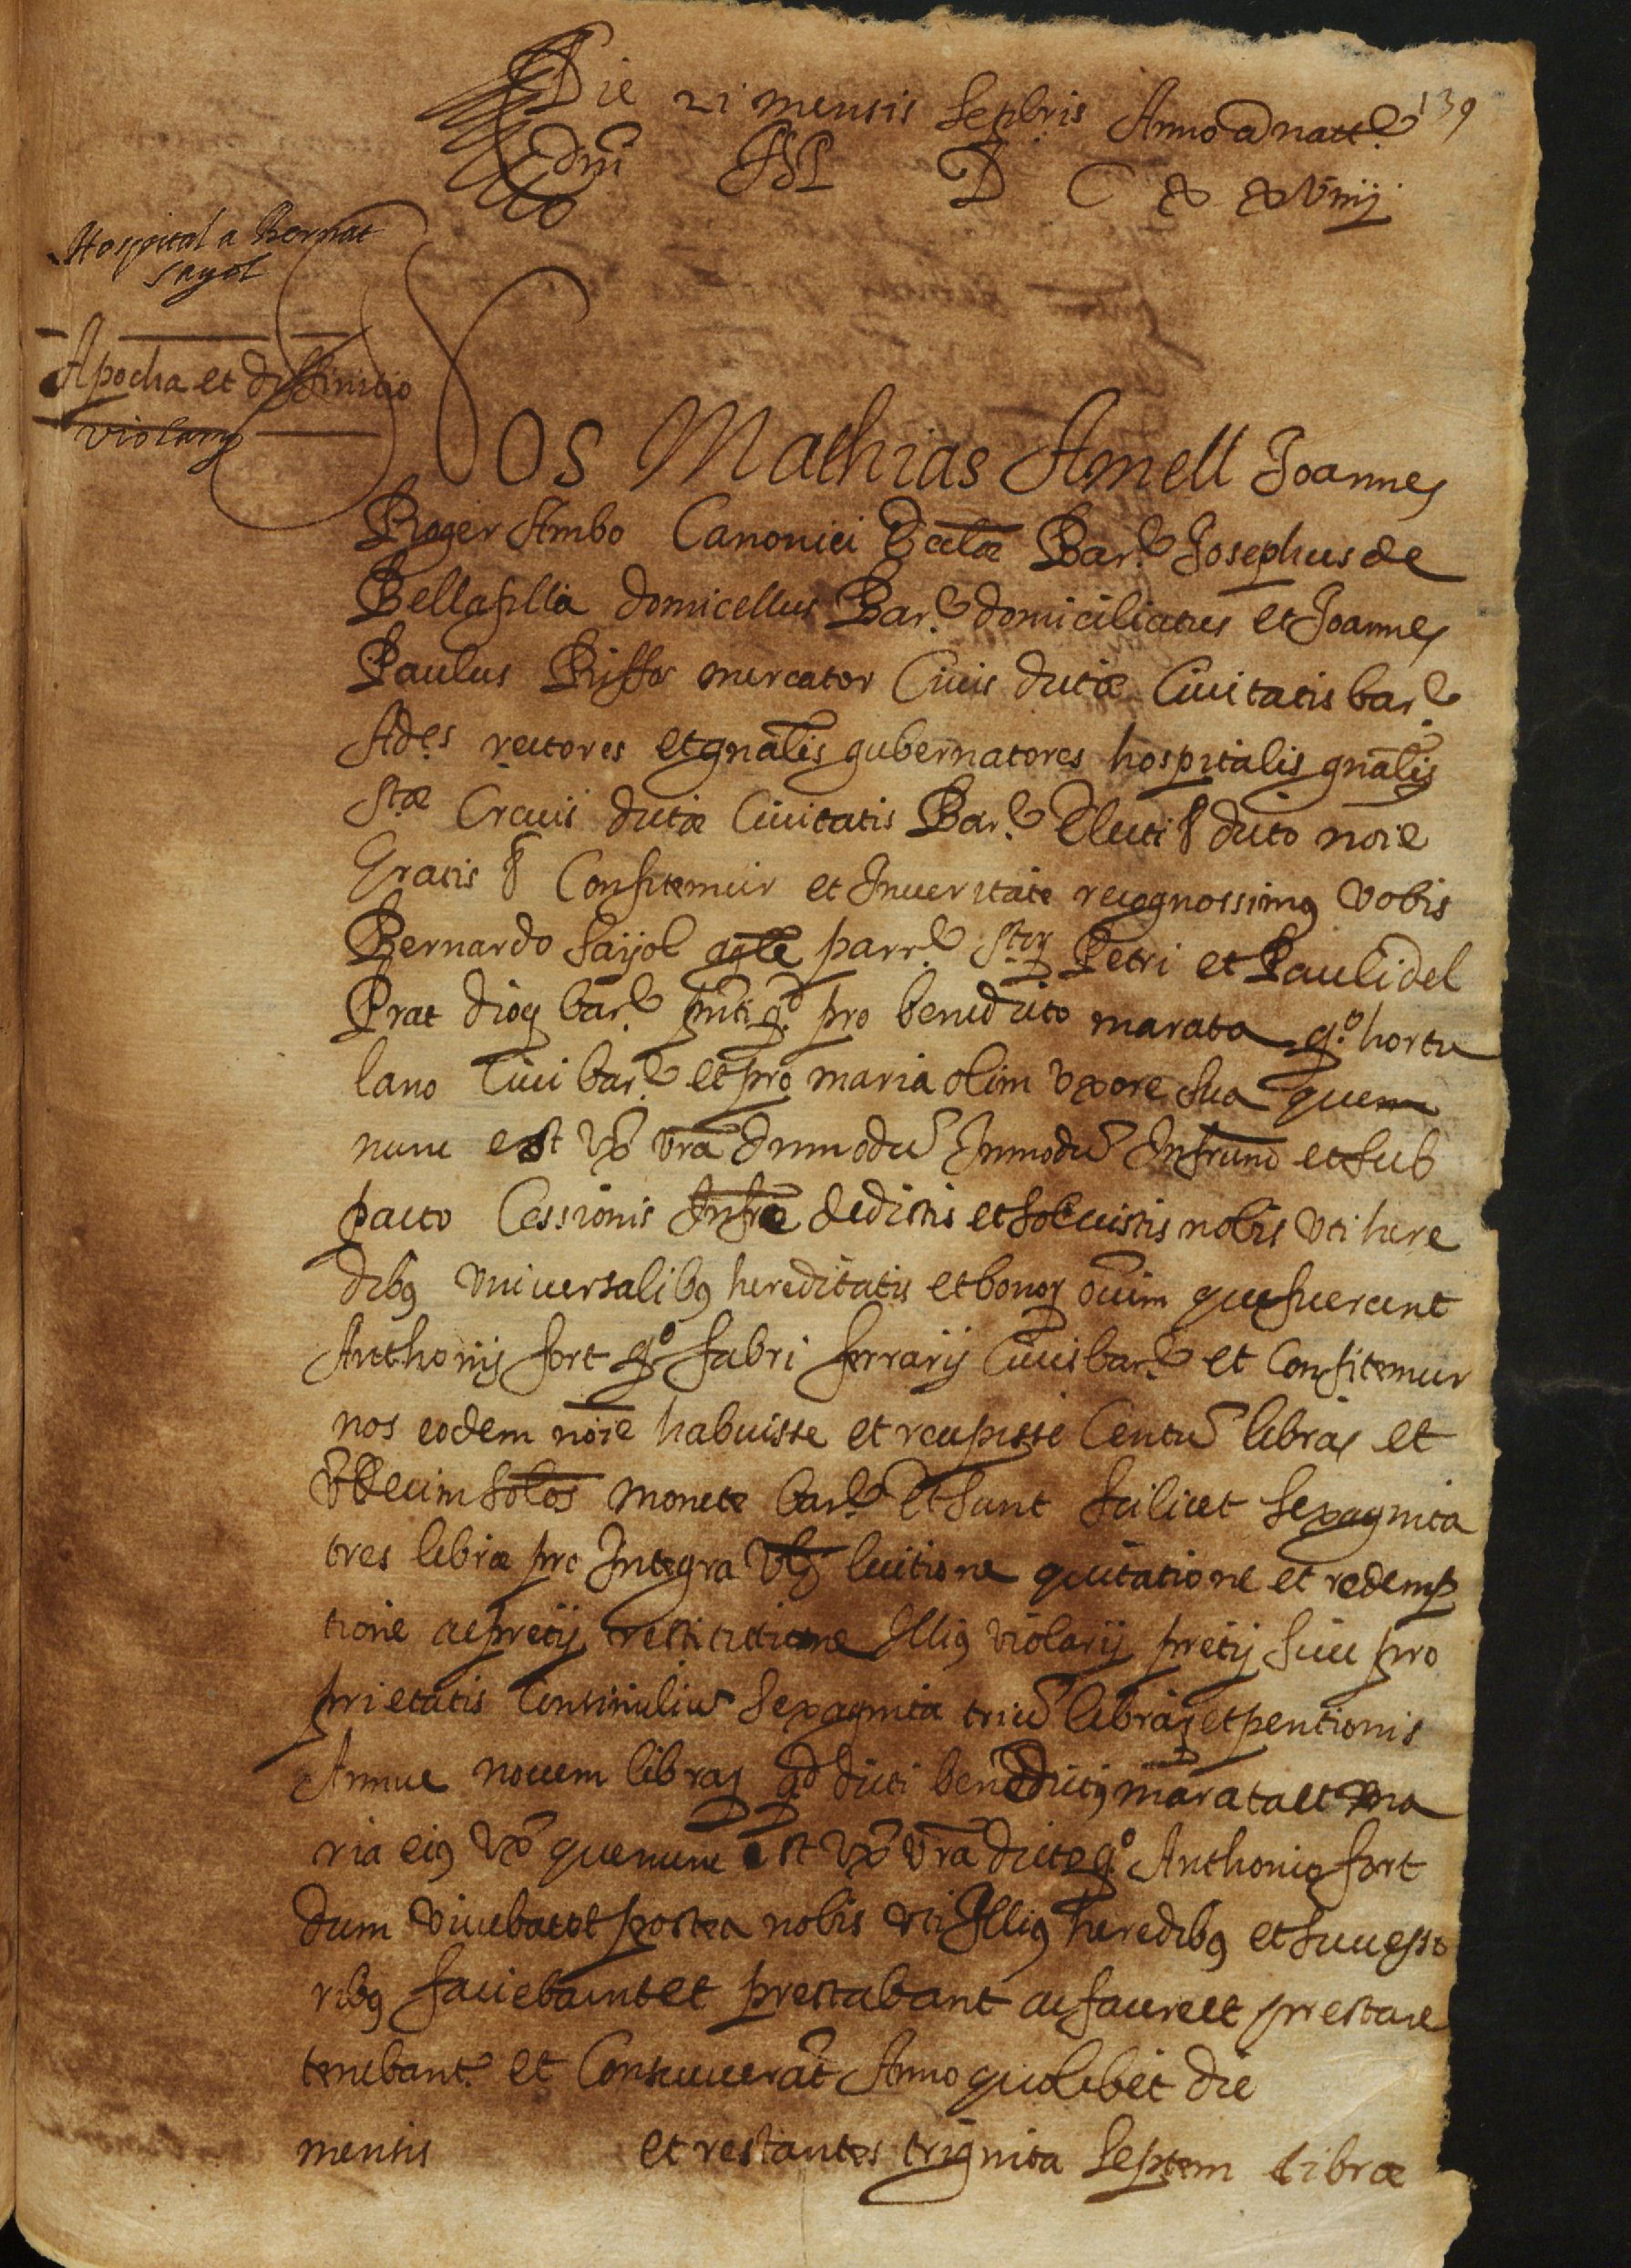 139
Die 21 mensis Sepbris Anno a natt.e
dni M D C x xviiij
Hospital a Bernat
Sayol
Apocha et diffinitio
violarij
Nos Mathias Amell Joannes
Roger Ambo Canonici Ecclæ Bar.e Josephus de
Bellafilla domicellus Bar.e domiciliatus et Joannes
Paulus Riffos mercator Civis dictæ Civitatis bar.e
Ades rectores et gnalis gubernatores hospitalis gnalis
Stæ Crucis dictæ Civitatis Bar.e Et uti dicto noie
Gratis & Confitemur et In veritate recognossimus vobis
Bernardo Saÿol agle parr.e Stor Petri et Pauli del
Prat diog bar.e pnti q.o pro benedicto marata q.o hortu
lano Civi bar.e et pro maria olim uxore sua que
nunc est vx vra Inmodu Infrum et sub
pacto Cessionis Infre dedistis et solvistis nobis uti here
dibus universalibus hereditatis et bonor oium que fuerunt
Anthonij fort q.o fabri ferrarij Civis bar.e et Confitemur
nos eodem noie habuisse et recepisse Centu libras et
undecim solos monete bar.e Et sunt scilicet sexaginta
tres libræ pro Integra luitione quitatione et redemp
tione ac pretij restitutione Illius violarij pretij sive pro
prietatis Consimiliu sexaginta triu librar et pentionis
Annue novem librar qd dicti benedictus marata et ma
ria eius vx que nunc est vx vra dicto q.o Anthonio fort
dum vivebat et postea nobis uti Illius heredibus et successo
ribus faciebant et prestabant ac facere et prestare
tenebant.r et Consueverat Anno quolibet die
mensis et restantes triginta septem libræ